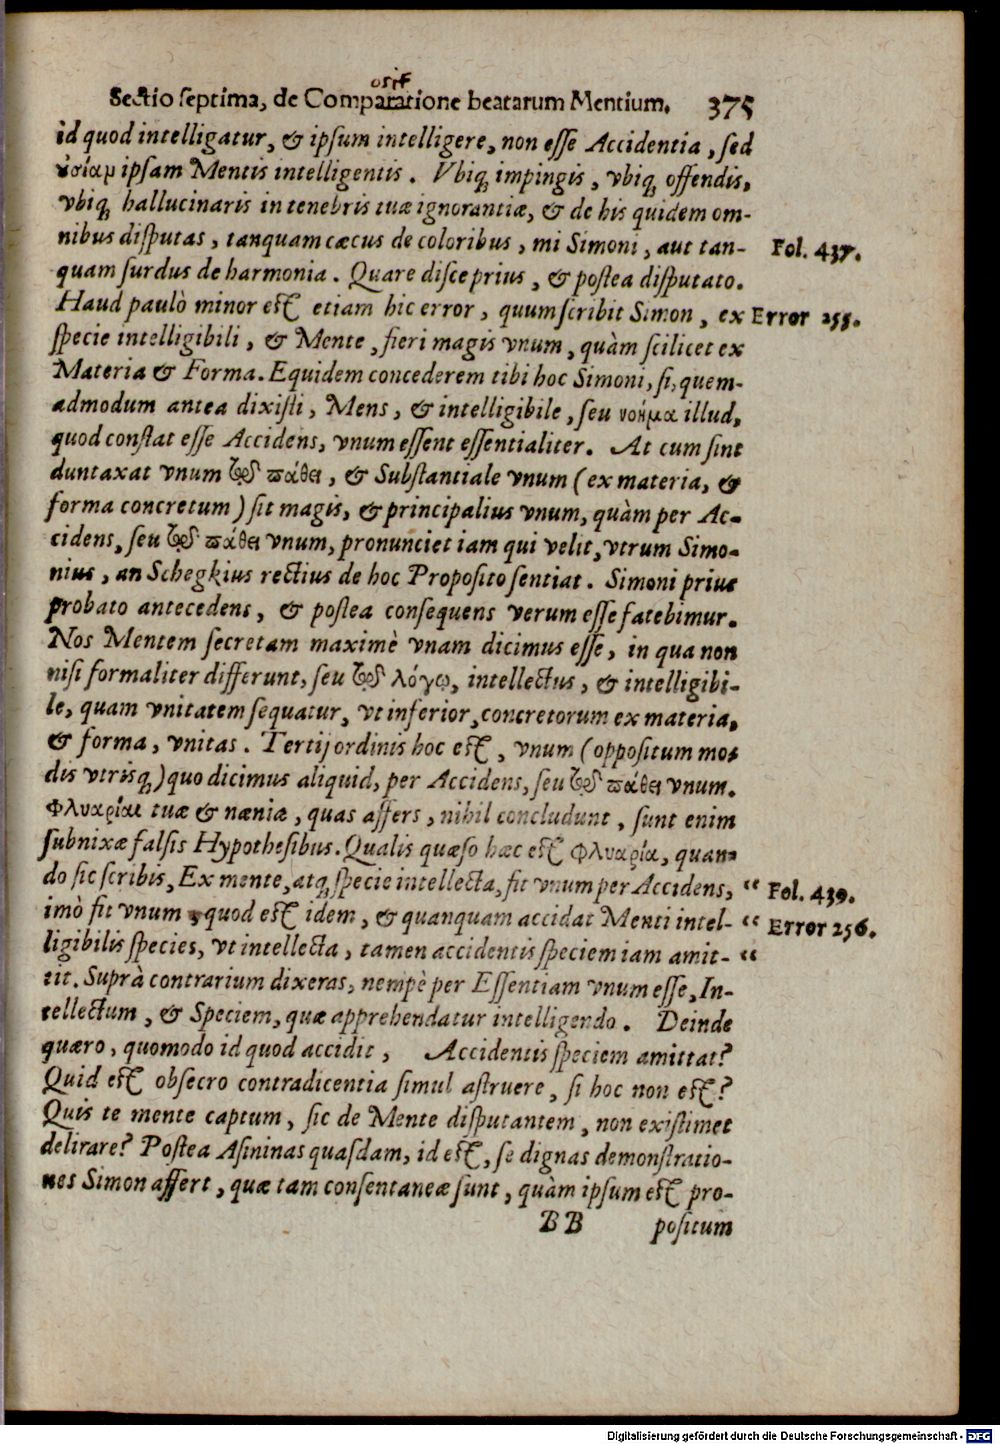 osit
Sectio septima, de Comparatione beatarum Mentium. 375
id quod intelligatur, & ipsum intelligere, non esse Accidentia, sed
ὐσίαμ ipsam Mentis intelligentis. Vbiq; impingis, vbiq; offendis,
vbiq; hallucinaris in tenebris tuæ ignorantiæ, & de his quidem om-
nibus disputas, tanquam cæcus de coloribus, mi Simoni, aut tan-
Fol. 437.
quam surdus de harmonia. Quare disce prius, & postea disputato.
Haud paulò minor est etiam hic error, quum scribit Simon, ex
Error 255.
specie intelligibili, & Mente, fieri magis vnum, quàm scilicet ex
Materia & Forma. Equidem concederem tibi hoc Simoni, si, quem-
admodum antea dixisti, Mens, & intelligibile, seu νοήμα illud,
quod constat esse Accidens, vnum essent essentialiter. At cum sint
duntaxat vnum τῷ πάθει, & Substantiale vnum (ex materia, &
forma concretum) sit magis, & principalius vnum, quàm per Ac-
cidens, seu τῷ πάθει vnum, pronunciet iam qui velit, vtrum Simo-
nius, an Schegkius rectius de hoc Proposito sentiat. Simoni prius
probato antecedens, & postea consequens verum esse fatebimur.
Nos Mentem secretam maximè vnam dicimus esse, in qua non
nisi formaliter differunt, seu τῷ λόγῳ, intellectus, & intelligibi-
le, quam vnitatem sequatur, vt inferior, concretorum ex materia,
& forma, vnitas. Tertij ordinis hoc est, vnum (oppositum mo-
dis vtrisq;) quo dicimus aliquid, per Accidens, seu τῷ πάθει vnum.
Φλυαρίαι tuæ & næniæ, quas affers, nihil concludunt, sunt enim
subnixæ falsis Hypothesibus. Qualis quæso hæc est φλυαρία, quan-
do sic scribis, Ex mente, atq; specie intellecta, fit vnum per Accidens, “
Fol. 439.
imò fit vnum, quod est idem, & quanquam accidat Menti intel- “
Error 256.
ligibilis species, vt intellecta, tamen accidentis speciem iam amit- “
tit. Suprà contrarium dixeras, nempè per Essentiam vnum esse, In-
tellectum, & Speciem, quæ apprehendatur intelligendo. Deinde
quæro, quomodo id quod accidit, Accidentis speciem amittat?
Quid est obsecro contradicentia simul astruere, si hoc non est?
Quis te mente captum, sic de Mente disputantem, non existimet
delirare? Postea Asininas quasdam, id est, se dignas demonstratio-
nes Simon affert, quæ tam consentaneæ sunt, quàm ipsum est pro-
BB positum
Digitalisierung gefördert durch die Deutsche Forschungsgemeinschaft - DFG